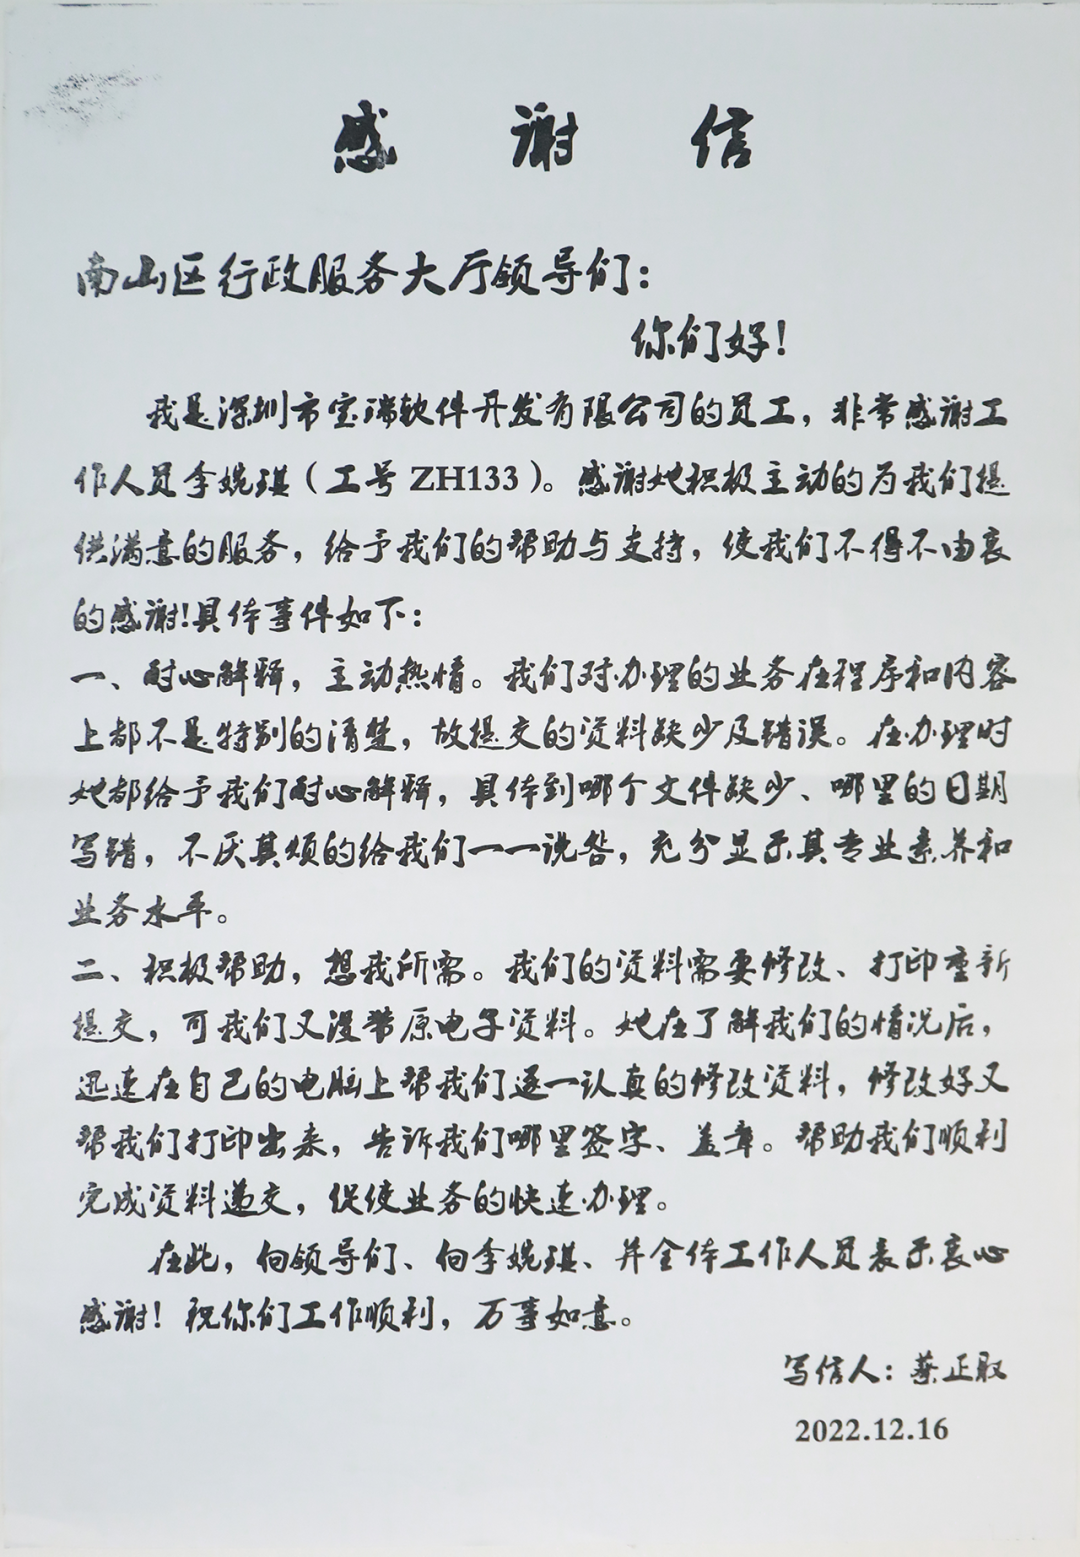 感谢信
南山区行政服务大厅领导们：
你们好！
我是深圳市宝瑞软件开发有限公司的员工，非常感谢工
作人员李婉琪（工号 ZH133）。感谢她积极主动的为我们提
供满意的服务，给予我们的帮助与支持，使我们不得不由衷
的感谢！具体事件如下：
一、耐心解释，主动热情。我们对办理的业务在程序和内容
上都不是特别的清楚，故提交的资料缺少及错误。在办理时
她都给予我们耐心解释，具体到哪个文件缺少、哪里的日期
写错，不厌其烦的给我们一一说咎，充分显示其专业素养和
业务水平。
二、积极帮助，想我所需。我们的资料需要修改、打印重新
提交，可我们又没带原电子资料。她在了解我们的情况后，
迅速在自己的电脑上帮我们逐一认真的修改资料，修改好又
帮我们打印出来，告诉我们哪里签字、盖章。帮助我们顺利
完成资料递交，促使业务的快速办理。
在此，向领导们、向李婉琪、并全体工作人员表示衷心
感谢！祝你们工作顺利，万事如意。
写信人：蔡正取
2022.12.16